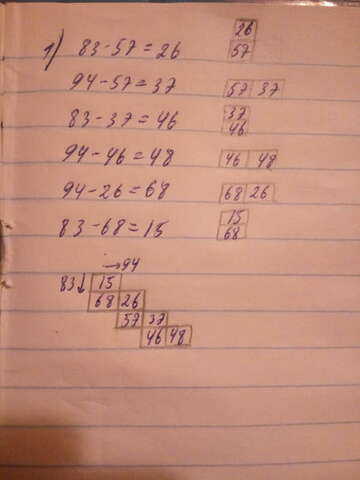 26
1) 83-57=26 57
94-57=37 57 37
83-37=46 37
46
94-46=48 46 48
94-26=68 68 26
83-68=15 15
68
→94
83↓ 15
68 26
57 37
46 48